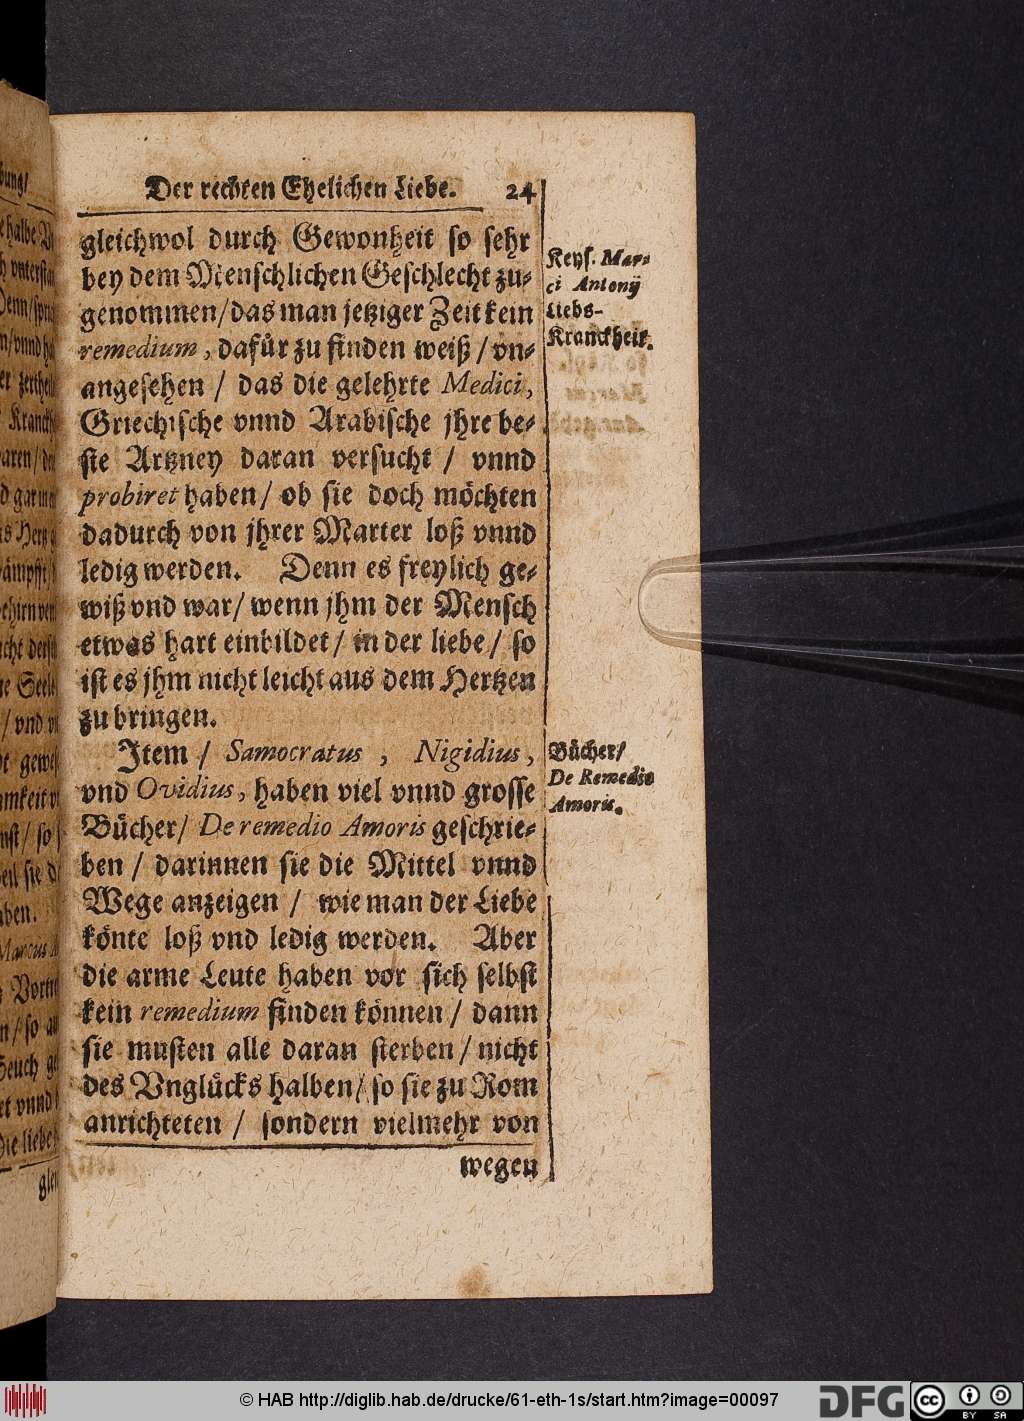 Der rechten Ehelichen Liebe. 24
gleichwol durch Gewonheit so sehr
bey dem Menschlichen Geschlecht zu-
genommen/das man jetziger Zeit kein
remedium, dafür zu finden weiß/vn-
angesehen / das die gelehrte Medici,
Griechische vnnd Arabische jhre be-
ste Artzney daran versucht / vnnd
probiret haben/ ob sie doch möchten
dadurch von jhrer Marter loß vnnd
ledig werden. Denn es freylich ge-
wiß vnd war/ wenn jhm der Mensch
etwas hart einbildet/ in der liebe/ so
ist es jhm nicht leicht aus dem Hertzen
zu bringen.
Item / Samocratus, Nigidius,
vnd Ovidius, haben viel vnnd grosse
Bücher/ De remedio Amoris geschrie-
ben / darinnen sie die Mittel vnnd
Wege anzeigen / wie man der Liebe
könte loß vnd ledig werden. Aber
die arme Leute haben vor sich selbst
kein remedium finden können / dann
sie musten alle daran sterben/ nicht
des Vnglücks halben/ so sie zu Rom
anrichteten / sondern vielmehr von
wegen
Keys. Mar-
ci Antonij
Liebs-
Kranckheit.
Bücher/
De Remedio
Amoris.
© HAB http://diglib.hab.de/drucke/61-eth-1s/start.htm?image=00097
DFG
cc
BY SA